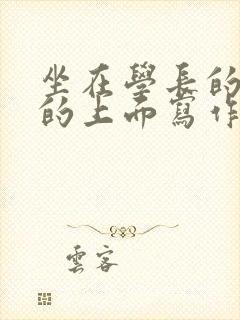 坐在學長的
的上而寫作
雲客